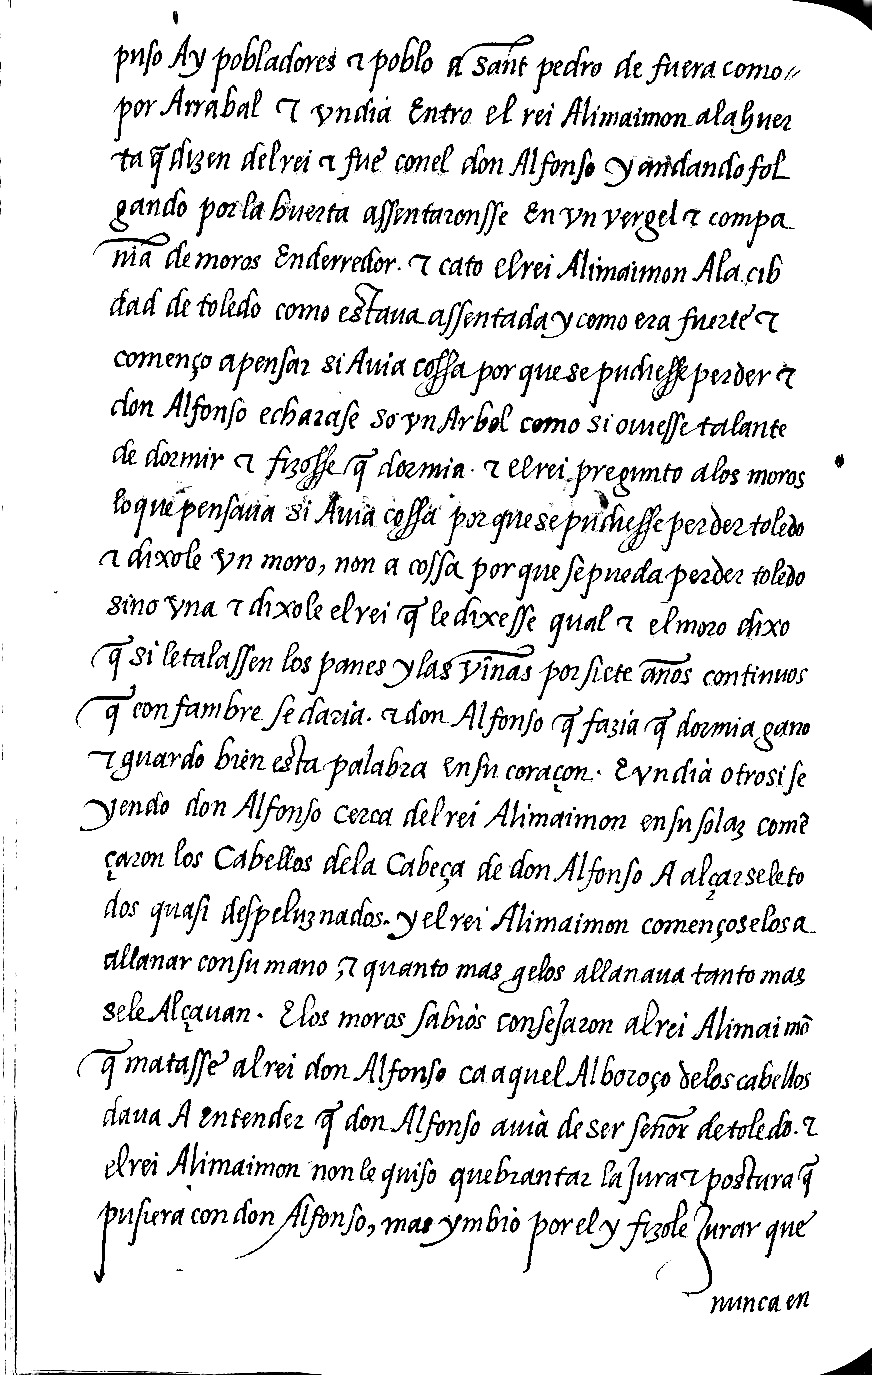 puso Ay pobladores ⁊ poblo a sant pedro de fuera como //
por Arrabal ⁊ vn dia Entro el rei Alimaimon ala huer
ta q̃ dizen del rei ⁊ fue conel don Alfonso y andando fol
gando por la huerta assentaronsse En vn vergel ⁊ compa
nĩa de moros Enderredor. ⁊ cato el rei Alimaimon Ala cib
dad de toledo como estaua assentada y como era fuerte ⁊
començo apensar si Auia cossa por que se pudiesse perder ⁊
don Alfonso echarase so vn Arbol como si ouiesse talante
de dormir ⁊ fizosse q̃ dormia. ⁊ el rei pregunto alos moros
lo que pensaua si Auia cossa por que se pudiesse perder toledo
⁊ dixole vn moro, non a cossa por que se pueda perder toledo
sino vna ⁊ dixole el rei q̃ le dixesse qual ⁊ el moro dixo
q̃ si le talassen los panes y las vĩnas por siete anõs continuos
q̃ con fambre se daria. ⁊ don Alfonso q̃ fazia q̃ dormia gano
⁊ guardo bien esta palabra en su coraçon. E vn dia otrosi se
yendo don Alfonso cerca del rei Alimaimon en su solaz comẽ
çaron los Cabellos dela Cabeça de don Alfonso A alçarsele to
dos quasi despeluznados. y el rei Alimaimon començoselos a
allanar con su mano ⁊ quanto mas gelos allanaua tanto mas
sele Alçauan. E los moros sabios consejaron al rei Alimaimõ
q̃ matasse al rei don Alfonso ca aquel Alboroço delos cabellos
daua A Entender q̃ don Alfonso auia de ser señor de toledo. ⁊
el rei Alimaimon non le quiso quebrantar la Jura ⁊ postura q̃
pusiera con don Alfonso, mas ymbio por el y fizole Jurar que
nunca en